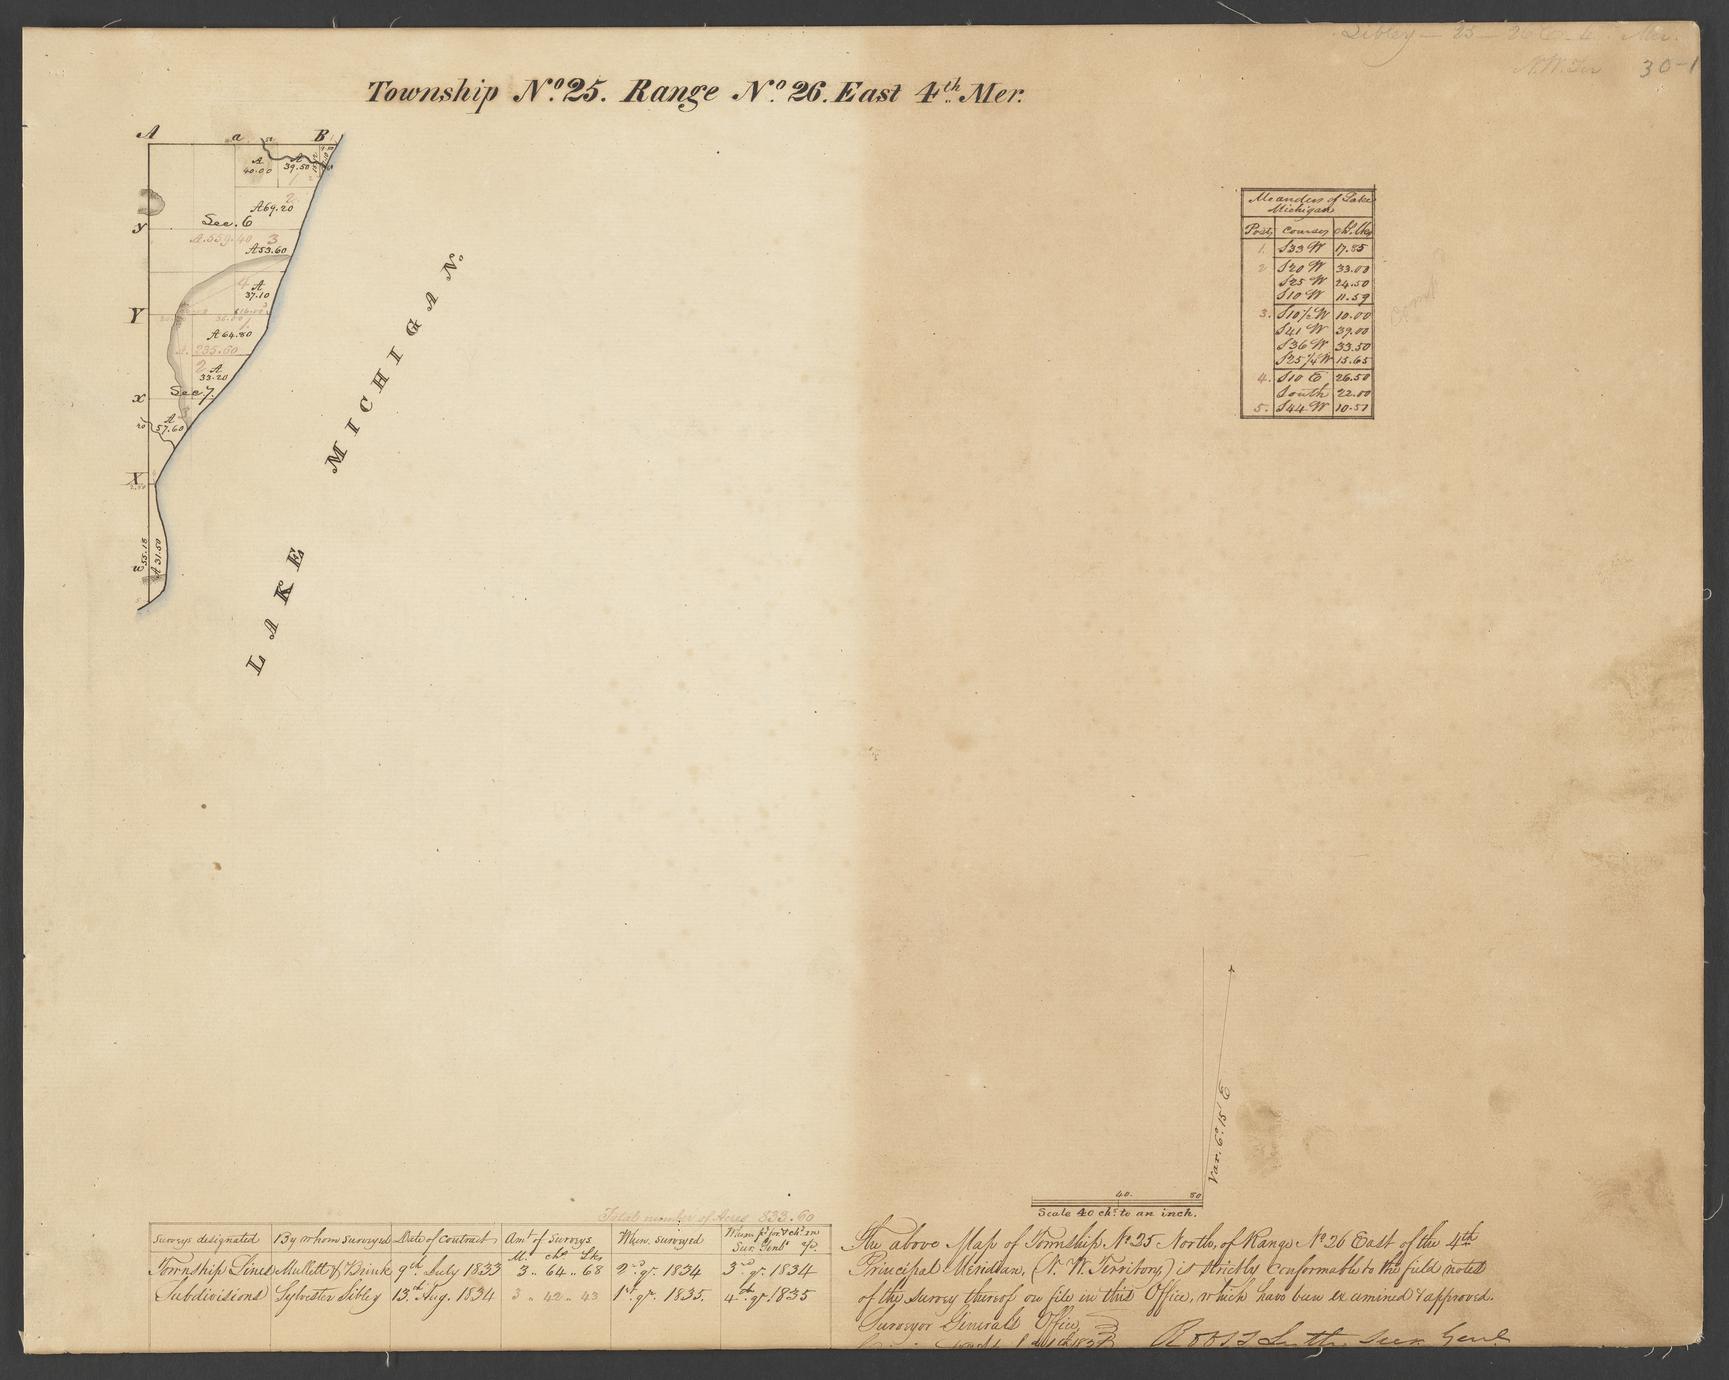 Sibley — 25 — 26 E. 4 Mer.
N.W. Ter 30-1
Township No. 25. Range No. 26. East 4th Mer.
A a a B
A
40.00
A
39.50
1
2
A 69.20
Sec. 6
y
A. 559.40
3
A 53.60
4
A
37.10
Y
1
A 64.80
A. 235.60
2
A
33.20
Sec. 7.
x
3
A
57.60
X
55.18
A 31.50
w
LAKE MICHIGAN.
Meanders of Lake
Michigan
Post, Courses Ch. Lks
1. S 33 W 17.85
2 S 20 W 33.00
S 25 W 24.50
S 10 W 11.59
3. S 10½ W 10.00
S 41 W 39.00
S 36 W 33.50
S 25¼ W 15.65
4. S 10 E 26.50
South 22.00
5. S 44 W 10.57
Var. 6° 15' E
40. 80
Scale 40 chs. to an inch.
Total number of Acres 833.60
Surveys designated By whom surveyed Date of contract Amt. of Surveys When surveyed
Ms. chs. Lks
Township Lines Mullett & Brink 9th July 1833 3.. 64.. 68 2nd qr. 1834 3rd qr. 1834
Subdivisions Sylvester Sibley 13th Aug. 1834 3.. 42.. 43 1st qr. 1835. 4th qr. 1835
The above Map of Township No. 25 North, of Range No. 26 East of the 4th
Principal Meridian, (N. W. Territory) is strictly conformable to the field notes
of the survey thereof on file in this Office, which have been examined & approved.
Surveyor Generals Office,